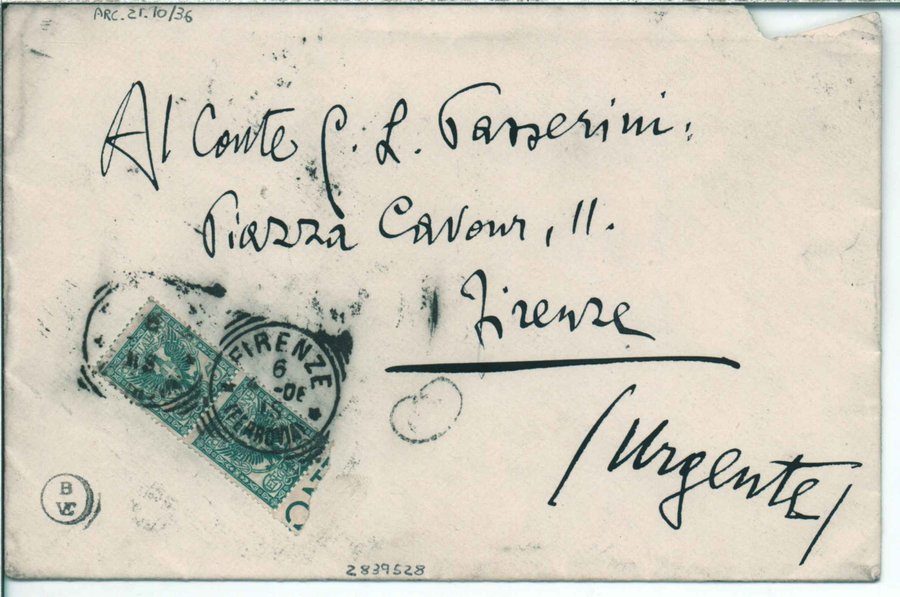 ARC. 21. 10/36
Al Conte G. L. Passerini.
Piazza Cavour, 11.
Firenze
(Urgente)
FIRENZE
6
-06
(FERROVIA)
B
2839528